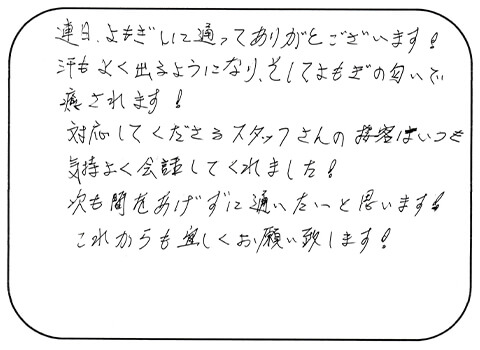 連日、よもぎんに通ってありがとございます!
汗もよく出るようになり、そしてよもぎの匂いで
癒されます!
対応してくださるスタッフさんの接客はいつも
気持よく会話してくれました!
次も間をあけずに通いたいっと思います!
これからも宜しくお願い致します!